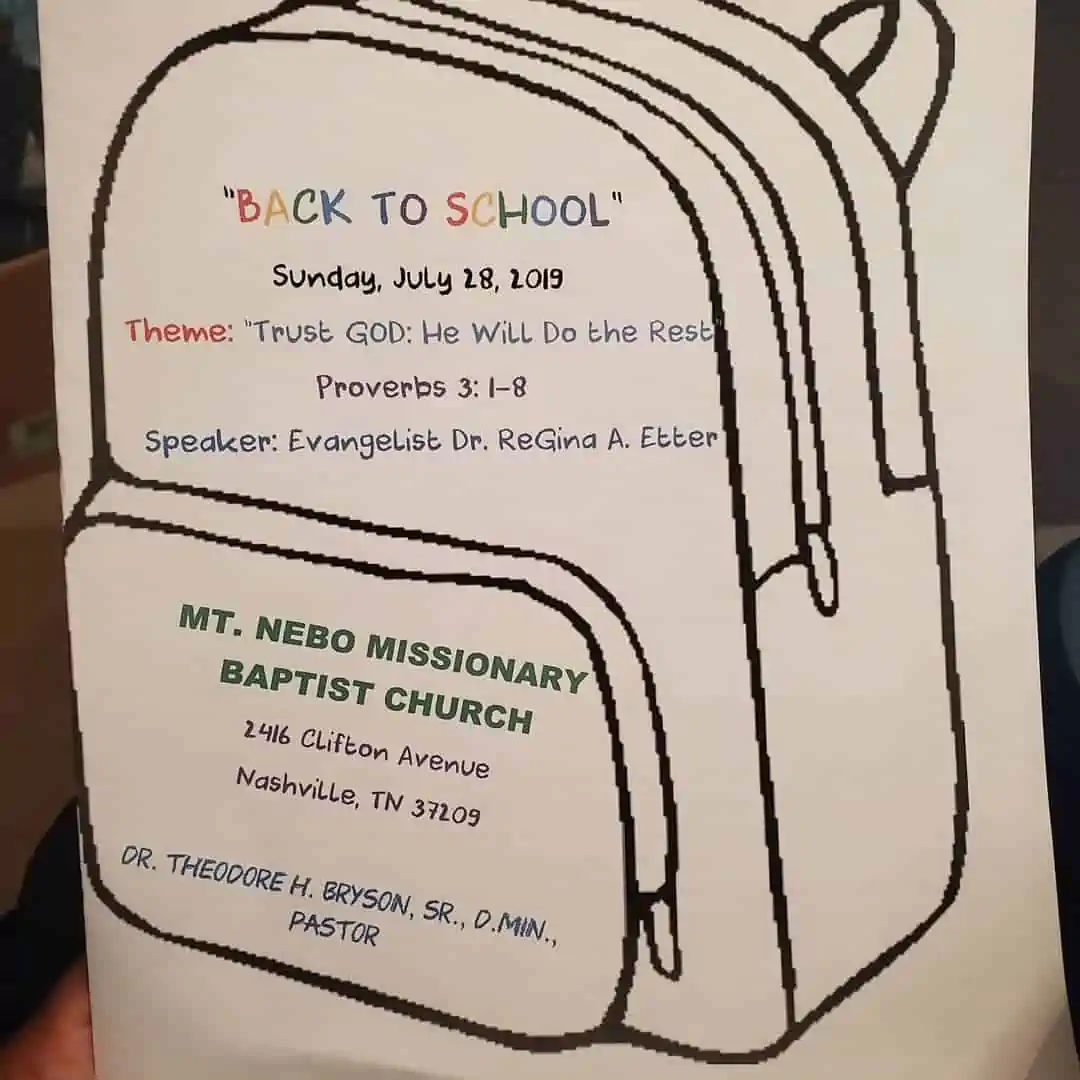 "BACK TO SCHOOL"
Sunday, July 28, 2019
Theme: "Trust GOD: He Will Do the Rest"
Proverbs 3: 1-8
Speaker: Evangelist Dr. ReGina A. Etter
MT. NEBO MISSIONARY
BAPTIST CHURCH
2416 Clifton Avenue
Nashville, TN 37209
DR. THEODORE H. BRYSON, SR., D.MIN.,
PASTOR